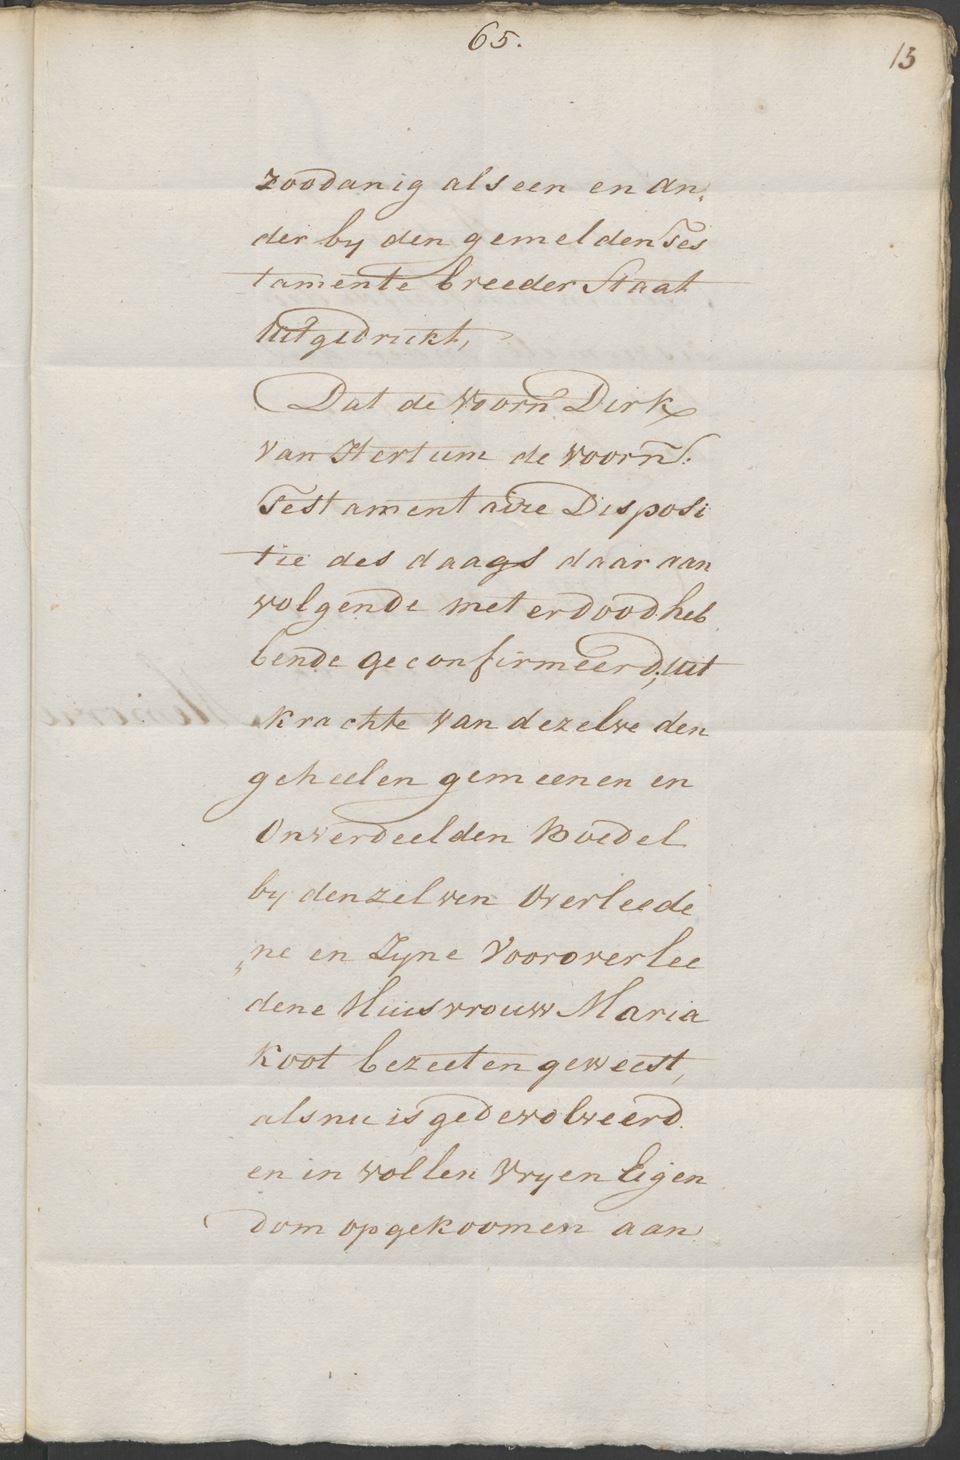 65.
13
zoodanig als een en an,
der by den gemelden Tes
tamente breeder Staat
uitgedrukt,
Dat de voorn. Dirk
van Hertum de voorn.
Testamentaire Disposi
tie des daags daar aan
volgende met er dood heb
bende geconfirmeerd; uit
krachte van dezelve den
geheelen gemeenen en
Onverdeelden Boedel
by denzelven Overleede
ne en Zyne Vooroverlee
dene Huisvrouw Maria
Koot bezeeten geweest,
als nu is gedevolveerd
en in vollen Vryen Eigen
dom opgekoomen aan